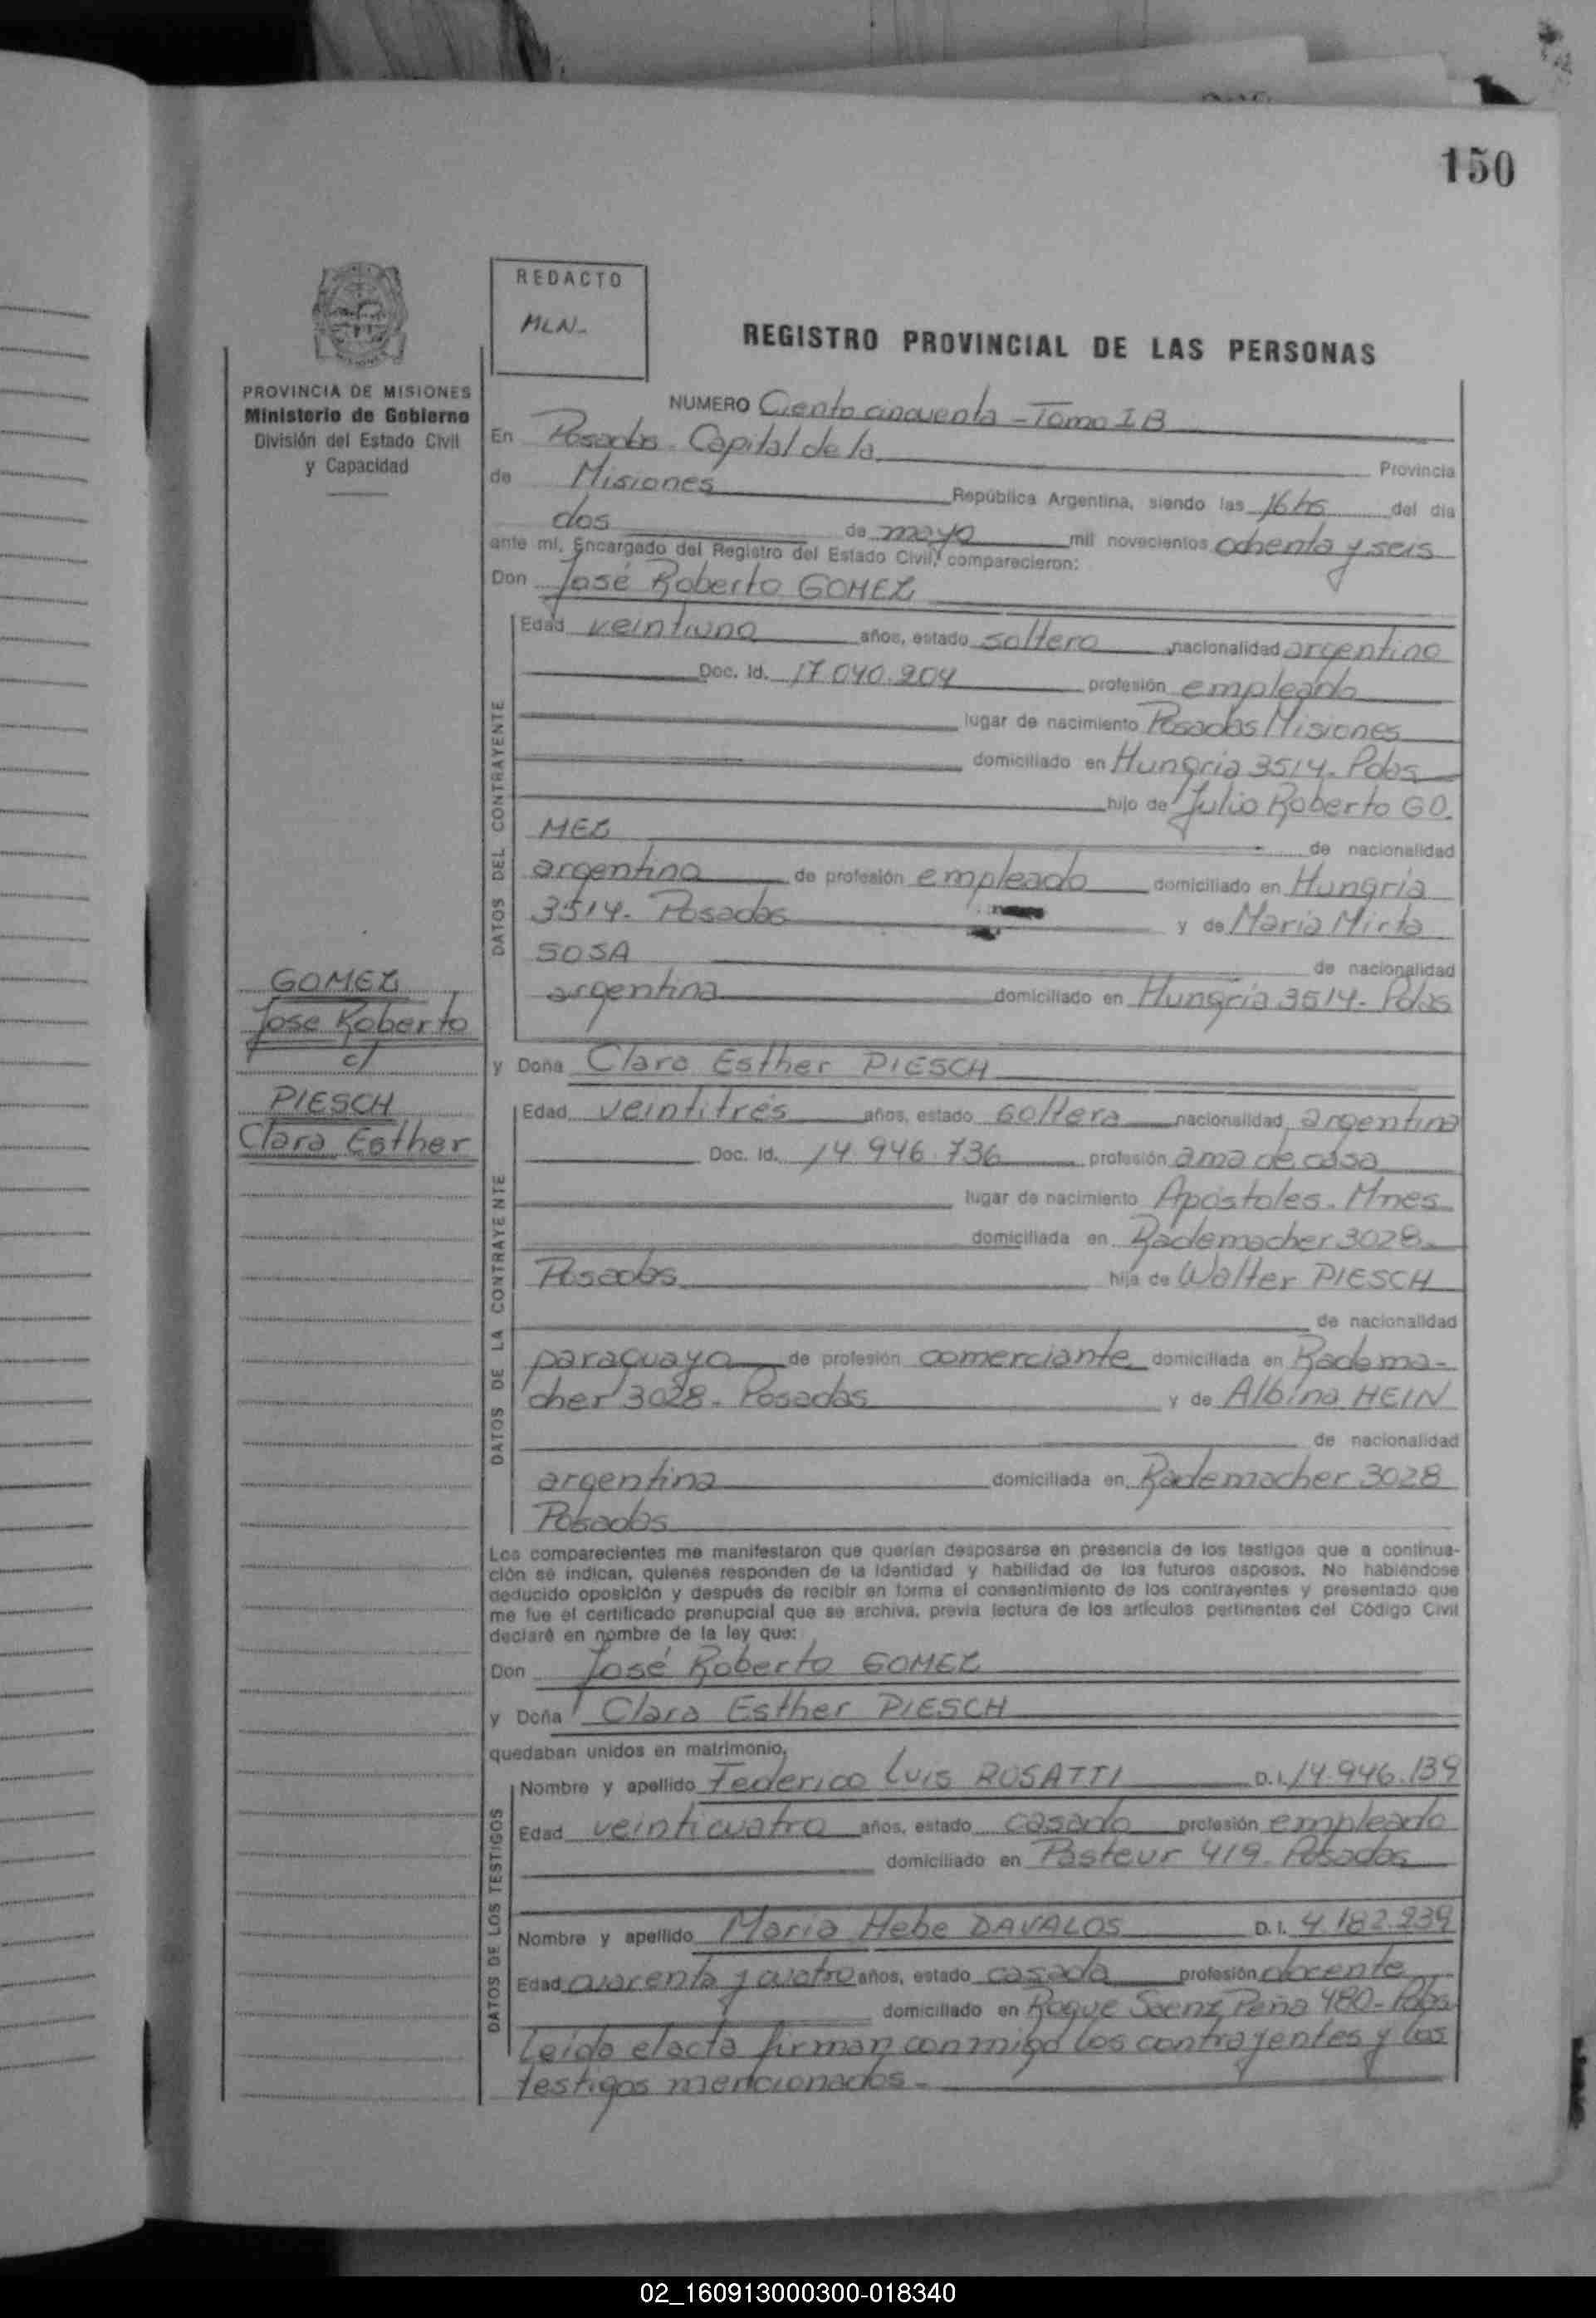 150
REDACTO
MLN-
REGISTRO PROVINCIAL DE LAS PERSONAS
PROVINCIA DE MISIONES
Ministerio de Gobierno
División del Estado Civil
y Capacidad
NUMERO Ciento cincuenta - Tomo I B
En Posadas - Capital de la Provincia
de Misiones República Argentina, siendo las 16 hs del día
dos de mayo mil novecientos ochenta y seis
ante mí, Encargado del Registro del Estado Civil, comparecieron:
Don José Roberto GOMEZ
DATOS DEL CONTRAYENTE
Edad veintiuno años, estado soltero nacionalidad argentino
Doc. Id. 17.040.904 profesión empleado
lugar de nacimiento Posadas Misiones
domiciliado en Hungría 3514. Pdas
hijo de Julio Roberto GO.
MEZ de nacionalidad
argentino de profesión empleado domiciliado en Hungría
3514. Posadas y de María Mirta
SOSA de nacionalidad
argentina domiciliado en Hungría 3514- Pdas
GOMEZ
Jose Roberto
c/
PIESCH
Clara Esther
y Doña Clara Esther PIESCH
DATOS DE LA CONTRAYENTE
Edad veintitrés años, estado soltera nacionalidad argentina
Doc. Id. 14.946.736 profesión ama de casa
lugar de nacimiento Apóstoles. Mnes
domiciliada en Rademacher 3028-
Posadas hija de Walter PIESCH
de nacionalidad
paraguayo de profesión comerciante domiciliada en Radema-
cher 3028. Posadas y de Albina HEIN
de nacionalidad
argentina domiciliada en Rademacher 3028
Posadas
Los comparecientes me manifestaron que querían desposarse en presencia de los testigos que a continua-
ción se indican, quienes responden de la identidad y habilidad de los futuros esposos. No habiéndose
deducido oposición y después de recibir en forma el consentimiento de los contrayentes y presentado que
me fue el certificado prenupcial que se archiva, previa lectura de los artículos pertinentes del Código Civil
declaré en nombre de la ley que:
Don José Roberto GOMEZ
y Doña Clara Esther PIESCH
quedaban unidos en matrimonio.
DATOS DE LOS TESTIGOS
Nombre y apellido Federico Luis ROSATTI D.I. 14.946.139
Edad veinticuatro años, estado casado profesión empleado
domiciliado en Pasteur 419- Posadas
Nombre y apellido Maria Hebe DAVALOS D.I. 4.182.939
Edad cuarenta y cuatro años, estado casada profesión docente
domiciliado en Roque Saenz Peña 480- Pdas
Leída el acta firman conmigo los contrayentes y los
testigos mencionados.-
02_160913000300-018340